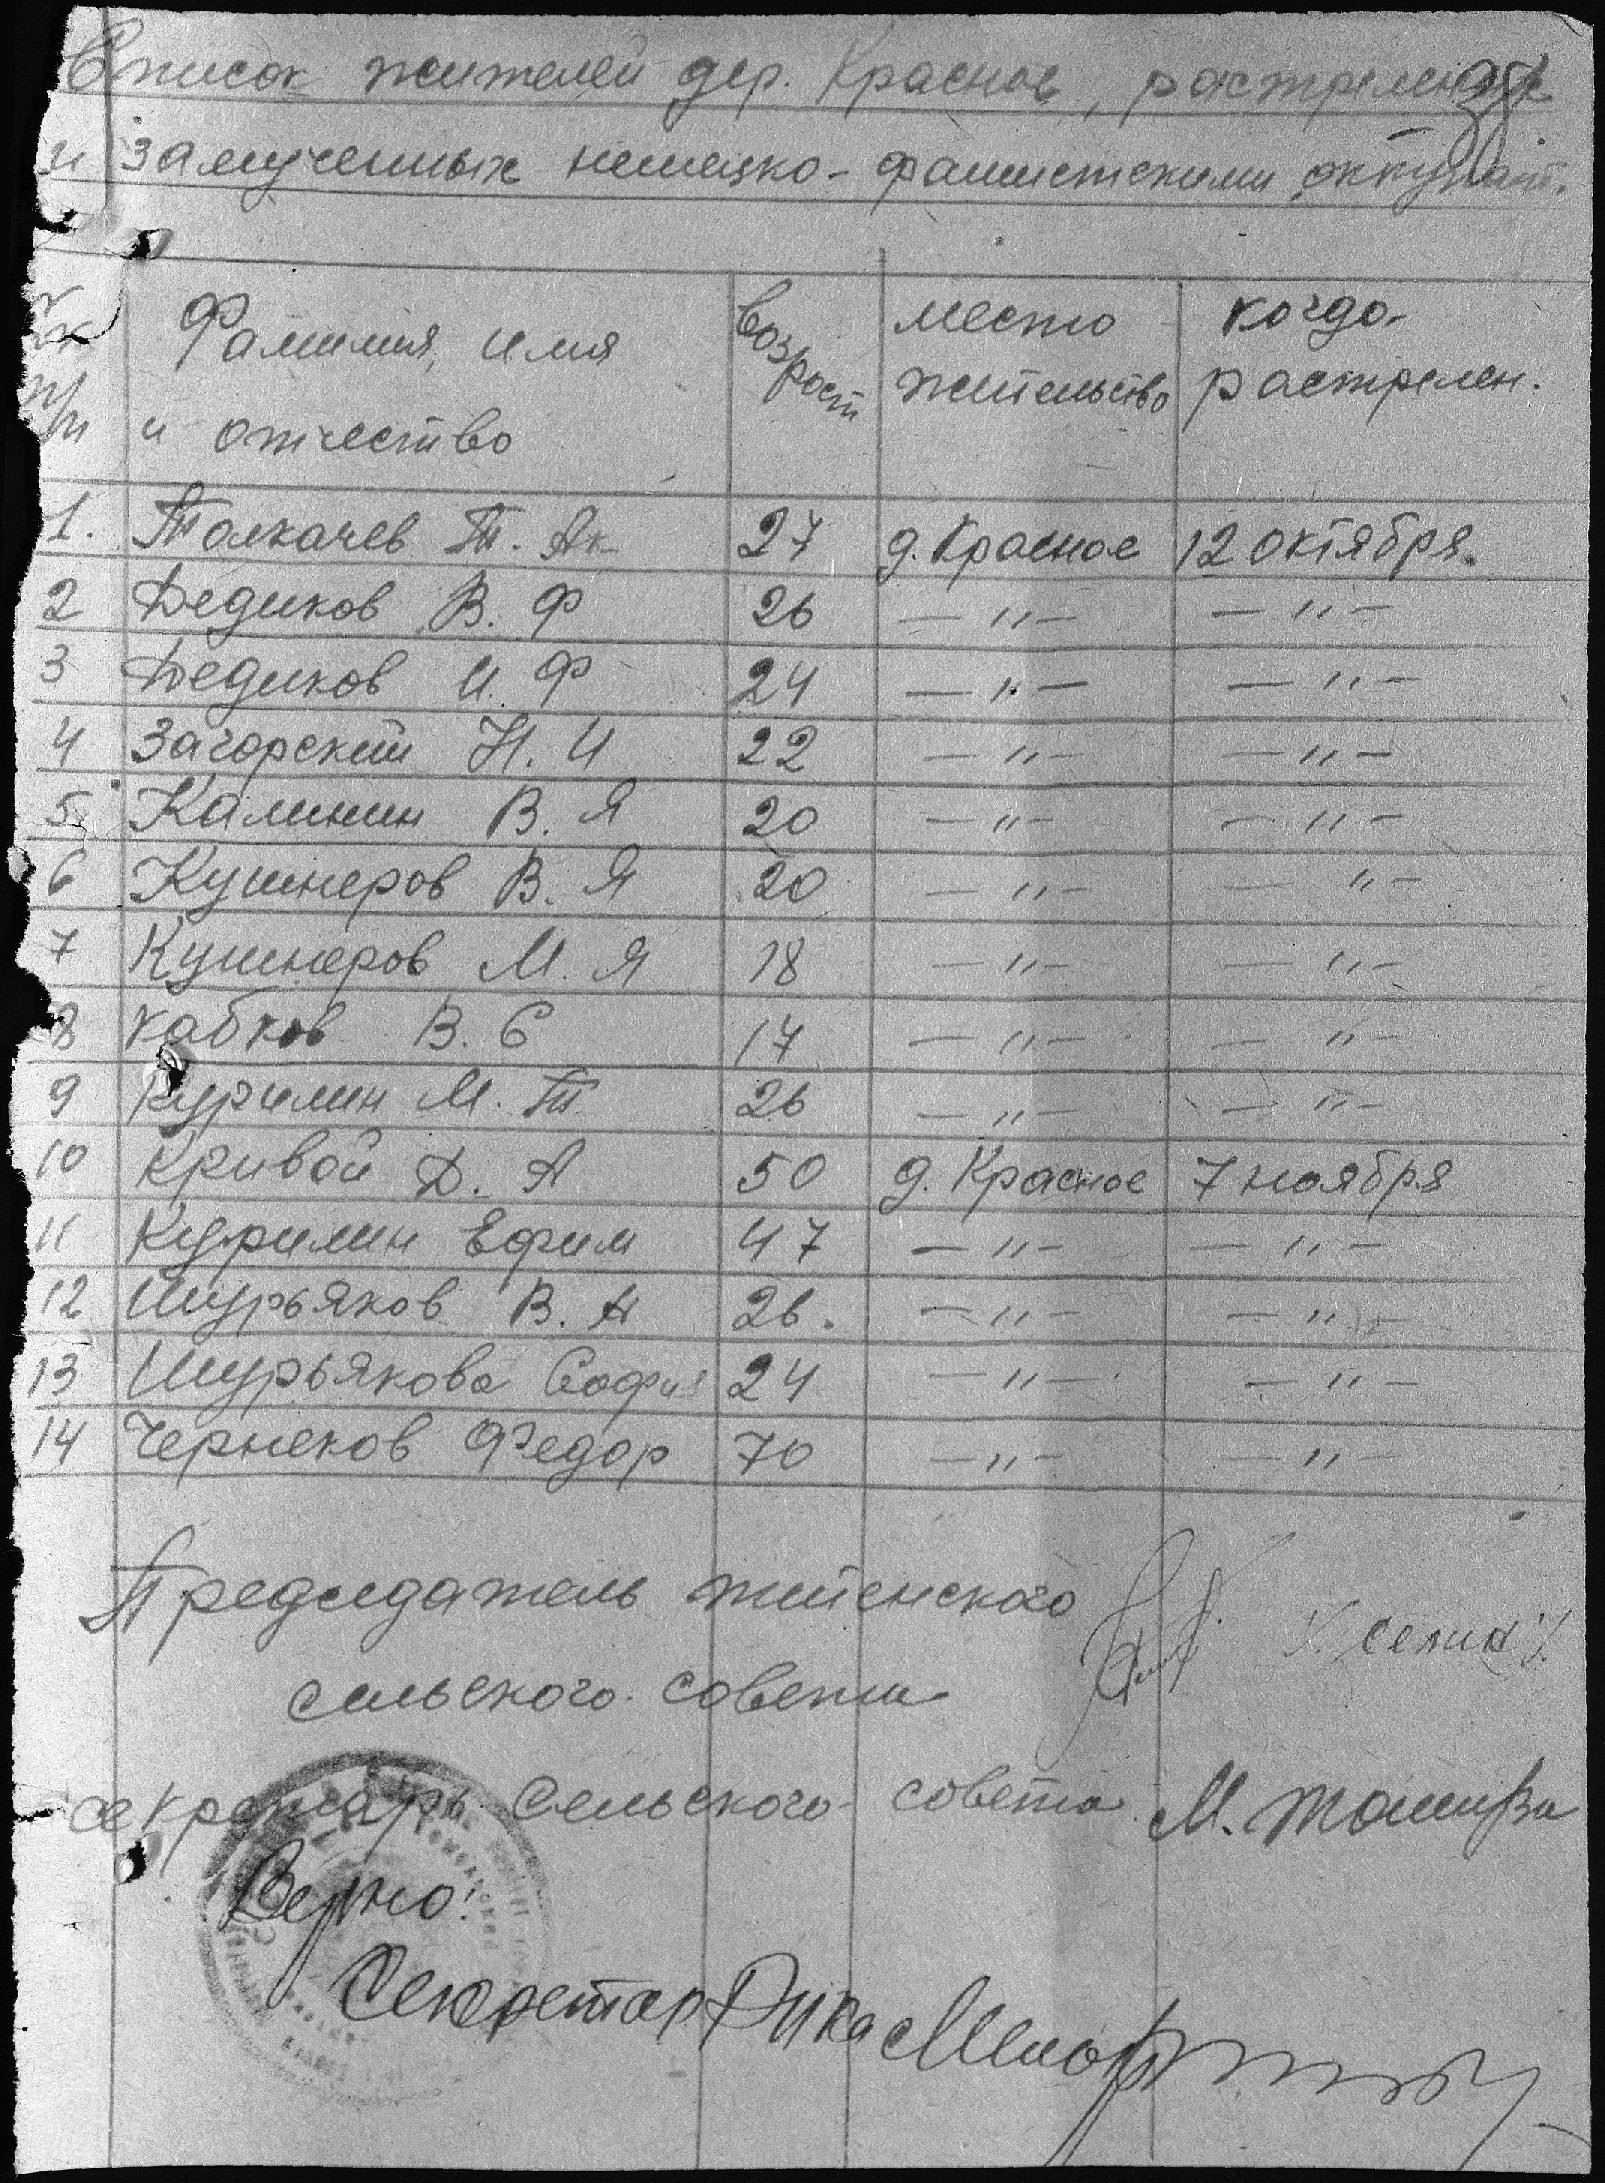 Список жителей дер. Красное, растрелен
и замученных немецко-фашистскими оккупант.
Фамилия, имя и отчество возраст место жительство когда растрелен.
1. Толкачев Т. Ак 27 д. Красное 12 октября.
2 Дедиков В. Ф 26 — " — — " —
3 Дедиков И. Ф 24 — " — — " —
4 Загорский Н. И 22 — " — — " —
5 Калинин В. Я 20 — " — — " —
6 Кушнеров В. Я 20 — " — — " —
7 Кушнеров М. Я 18 — " — — " —
8 Кабков В. Е 17 — " — — " —
9 Курилин М. Т 26 — " — — " —
10 Кривой Д. А 50 д. Красное 7 ноября
11 Курилин Ефим 47 — " — — " —
12 Шурьяков В. А 26. — " — — " —
13 Шурьякова София 24 — " — — " —
14 Чернеков Федор 70 — " — — " —
Председатель
сельского совета
секретарь сельского совета М.
Верно!
Секретар Рика